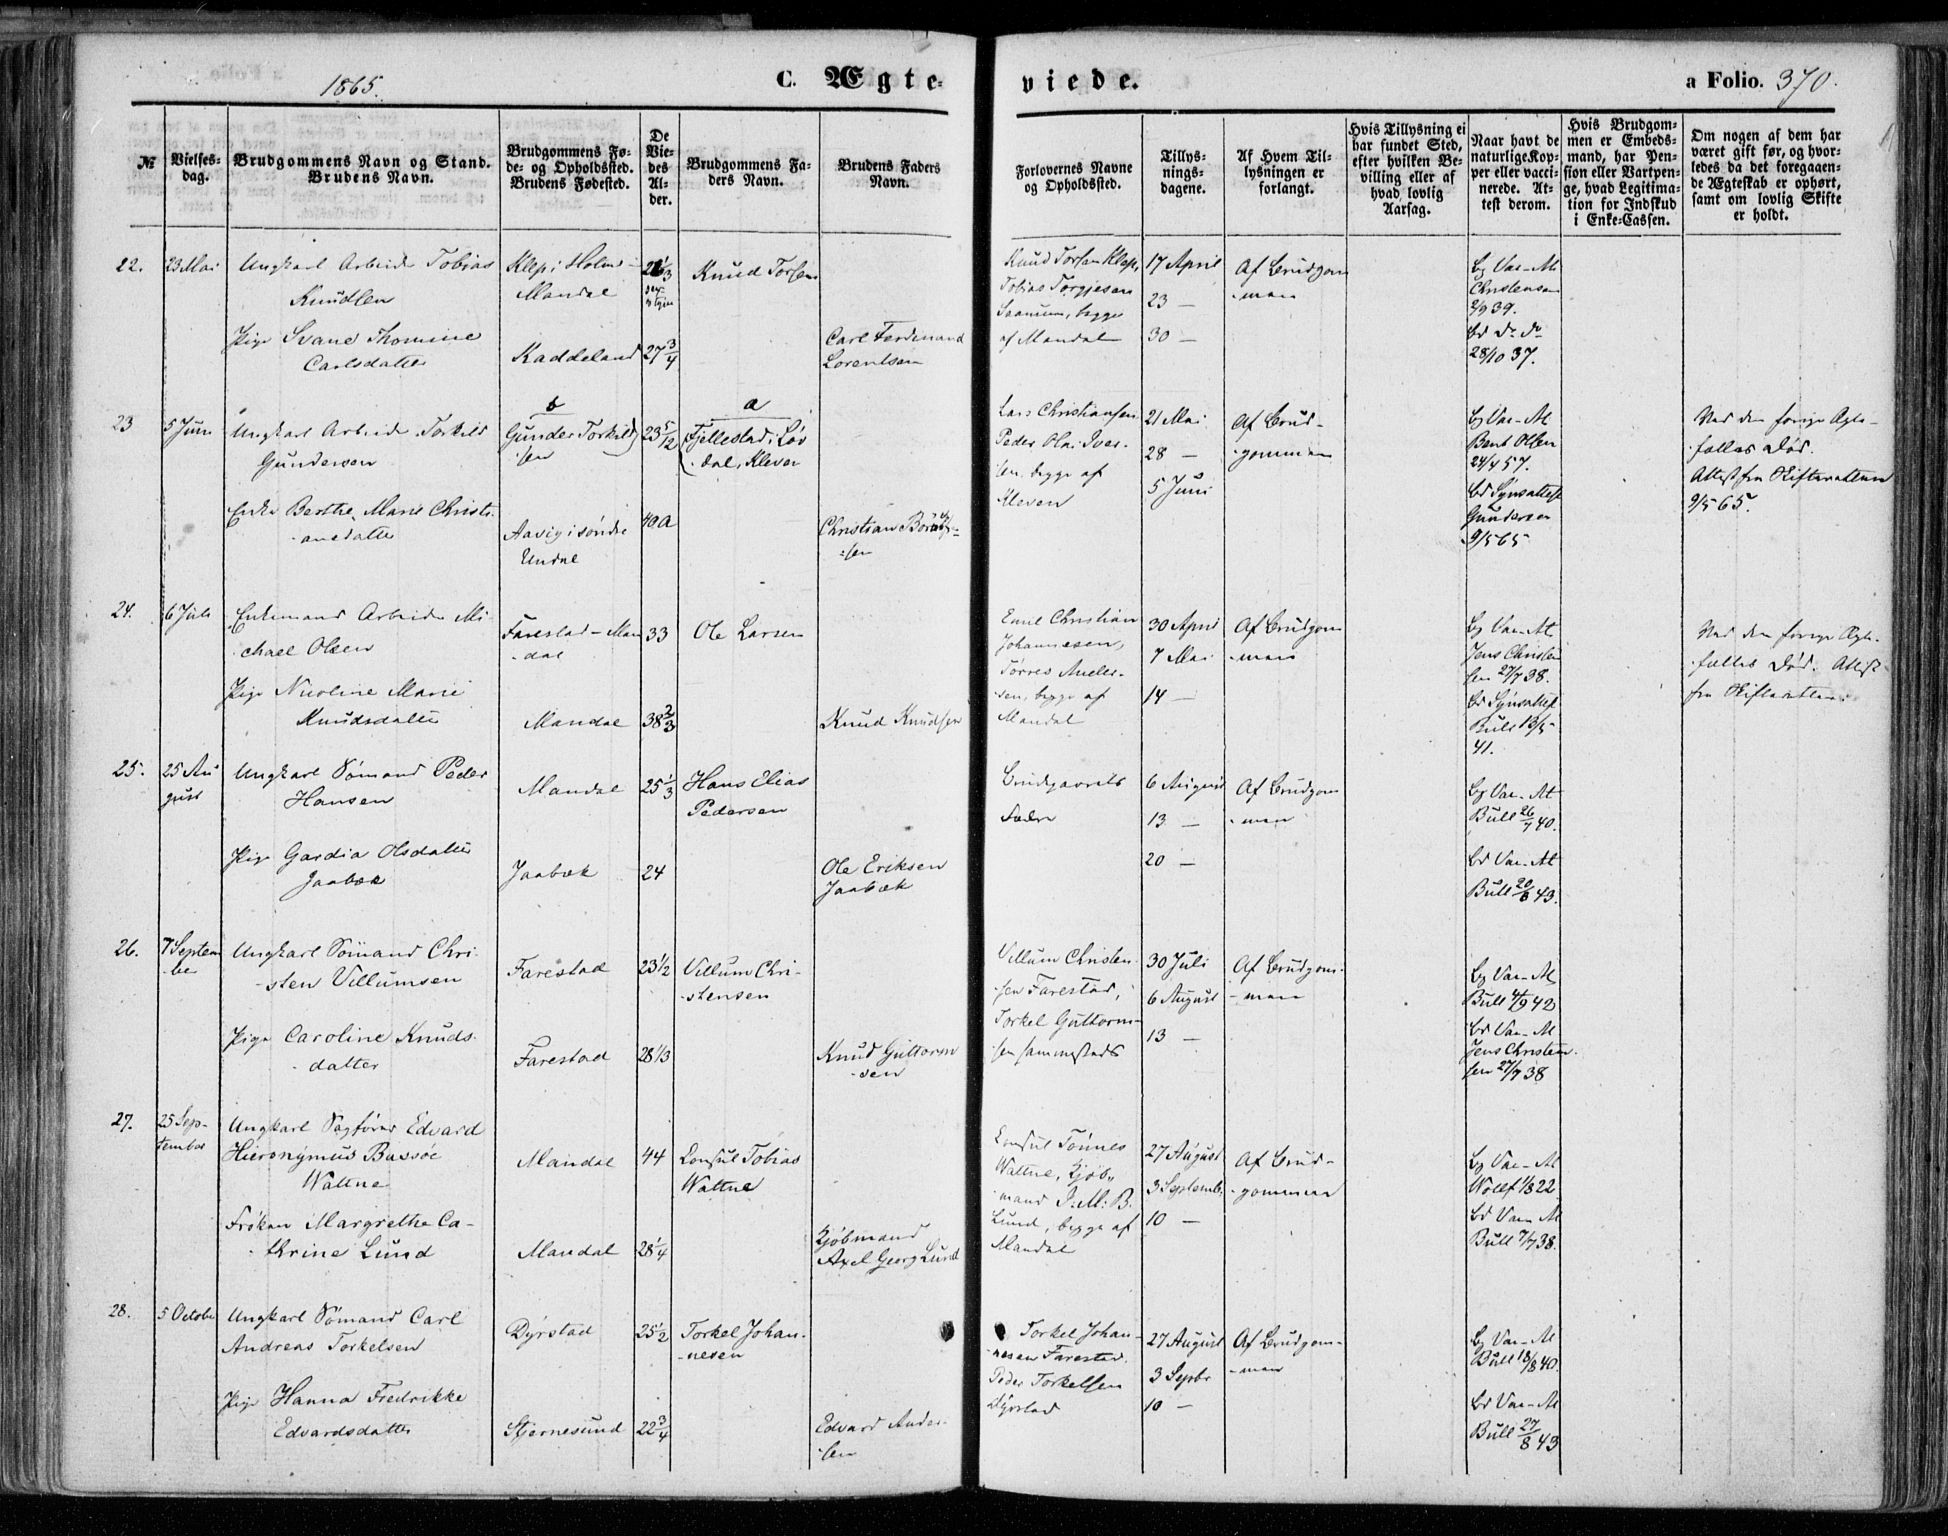 1865.
C. Ægteviede.
a Folio. 370.
№
Vielses-
dag.
Brudgommens Navn og Stand.
Brudens Navn.
Brudgommens Fø-
de- og Opholdssted.
Brudens Fødested.
De
Vie-
des
Al-
der.
Brudgommens Fa-
ders Navn.
Brudens Faders
Navn.
Forlovernes Navne
og Opholdssted.
Tillys-
nings-
dagene.
Af Hvem Til-
lysningen er
forlangt.
Hvis Tillysning ei
har fundet Sted,
efter hvilken Be-
villing eller af
hvad lovlig
Aarsag.
Naar havt de
naturlige Kop-
per eller vacci-
nerede. At-
test derom.
Hvis Brudgom-
men er Embeds-
mand, har Pen-
sion eller Vartpen-
ge, hvad Legitima-
tion for Indskud
i Enke-Cassen.
Om nogen af dem har
været gift før, og hvor-
ledes da det foregaaen-
de Ægteskab er ophørt,
samt om lovlig Skifte
er holdt.
22.
23 Mai
Ungkarl Arbeider Tobias
Knudsen
Klep i Holme-
Mandal
Knud Torsen
Knud Torsen Klep,
Tobias Torgjesen
begge
af Mandal
17 April
23 —
30 —
Af Brudgom-
men
Bg Vac-At
Christensen
2/9 39.
Bd Do Do
28/10 37.
Pige Svane Thomine
Carlsdatter
Kaddeland
27 3/4
Carl Ferdinand
Lorentsen
23
5 Juni
Ungkarl Arbeider Torkild
Gundersen
b
Gunder Torkild-
sen
23 5/12
a
Fjellestad i Løv-
dal, Kleven
Lars Christiansen
Peder Olai Iver-
sen, begge af
Kleven
21 Mai
28 —
5 Juni
Af Brud-
gommen
Bg Vac-At
Bent Olsen
24/4 57.
Bd Synsattest
Gundersen
9/5 65
Ved den forige Ægte-
fælles Død.
Attest fra Skifteretten
9/5 65.
Enke Berthe Marie Christi-
ansdatter
Aavig i søndre
Undal
40
Christian
-sen
24.
6 Juli
Enkemand Arbeider Mi-
chael Olsen
Farestad - Man-
dal
33
Ole Larsen
Emil Christian
Johannesen,
Tørres Anders-
sen, begge af
Mandal
30 April
7 Mai
14 —
Af Brudgom-
men
Bg Vac-At
Jens Christen-
sen 27/7 38.
Bd Synsattest
Bull 13/5
41.
Ved den forige Ægte-
fælles Død. Attest
fra Skifteretten
Pige Nicoline Marie
Knudsdatter
Mandal
38 2/3
Knud Knudsen
25.
25 Au-
gust
Ungkarl Sømand Peder
Hansen
Mandal
25 1/3
Hans Elias
Pedersen
Brudgaarets
Fædre
6 August
13 —
20 —
Af Brudgom-
men
Bg Vac-At
Bull 26/7 40.
Bd Vac-At
Bull 20/8 43.
Pige Gardia Olsdatter
Jaabæk
Jaabæk
24
Ole Eriksen
Jaabæk
26.
7 Septem-
ber
Ungkarl Sømand Chri-
sten Villumsen
Farestad
23 1/2
Villum Chri-
stensen
Villum Christen-
sen Farestad,
Torkel Guttorm-
sen sammesteds
30 Juli
6 August
13 —
Af Brudgom-
men
Bg Vac-At
Bull 4/9 42
Bd Vac-At
Jens Christen-
sen 27/7 38
Pige Caroline Knuds-
datter
Farestad
28 1/3
Knud Guttorm-
sen
27.
25 Sep-
tember
Ungkarl Sagfører Edvard
Hieronymus Bassøe
Wattne
Mandal
44
Consul Tobias
Wattne
Consul Tönnes
Wattne, Kjøb-
mand J. M. B.
Lund, begge af
Mandal
27 August
3 Septembr
10 —
Af Brud-
gommen
Bg Vac-At
Wolff 1/8 22.
Bd Vac-At
Bull 7/7 38.
Frøken Margrethe Ca-
thrine Lund
Mandal
28 1/4
Kjøbmand
Axel Georg Lund
28.
5 October
Ungkarl Sømand Carl
Andreas Torkelsen
Dyrstad
25 1/2
Torkel Johan-
nesen
Torkel Johan-
nesen Farestad.
Peder Torkelsen
Dyrstad
27 August
3 Septbr
10 —
Af Brudgom-
men
Bg Vac-At
Bull 18/8 40.
Bd Vac-At
Bull 27/8 43
Pige Hanna Fredrikke
Edvardsdatter
Stjernesund
22 3/4
Edvard Ander-
sen